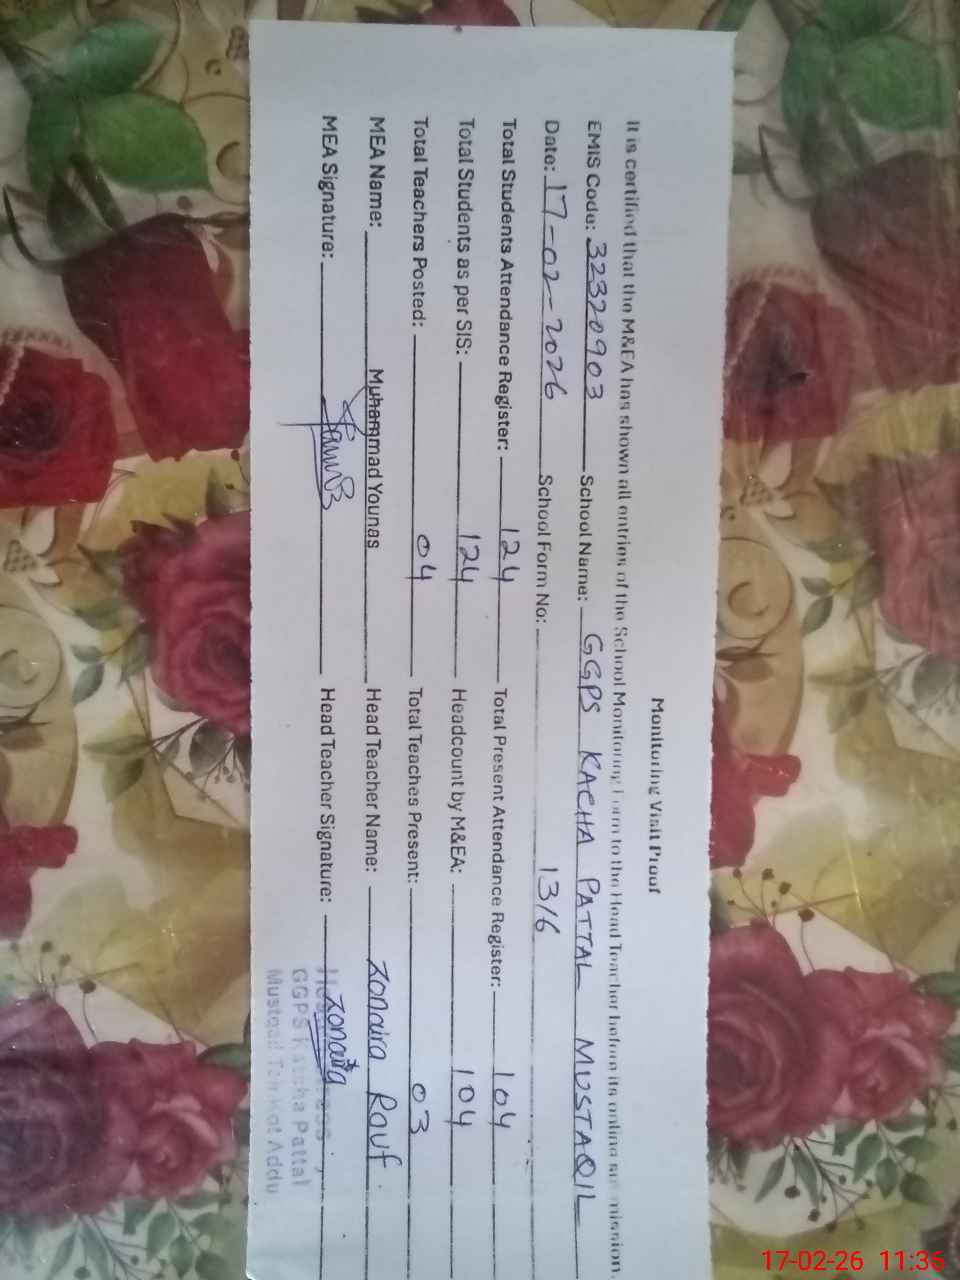 Monitoring Visit Proof
It is certified that the M&EA has shown all entries of the School Monitoring Form to the Head Teacher before its online submission.
EMIS Code: 32320903 School Name: GGPS KACHA PATTAL MUSTAQIL
Date: 17-02-2026 School Form No: 1316
Total Students Attendance Register: 124 Total Present Attendance Register: 104
Total Students as per SIS: 124 Headcount by M&EA: 104
Total Teachers Posted: 04 Total Teaches Present: 03
MEA Name: Muhammad Younas Head Teacher Name: Zonaira Rouf
MEA Signature: Head Teacher Signature: Zonaira
GGPS Kaccha Pattal
Kot Addu
17-02-26 11:36